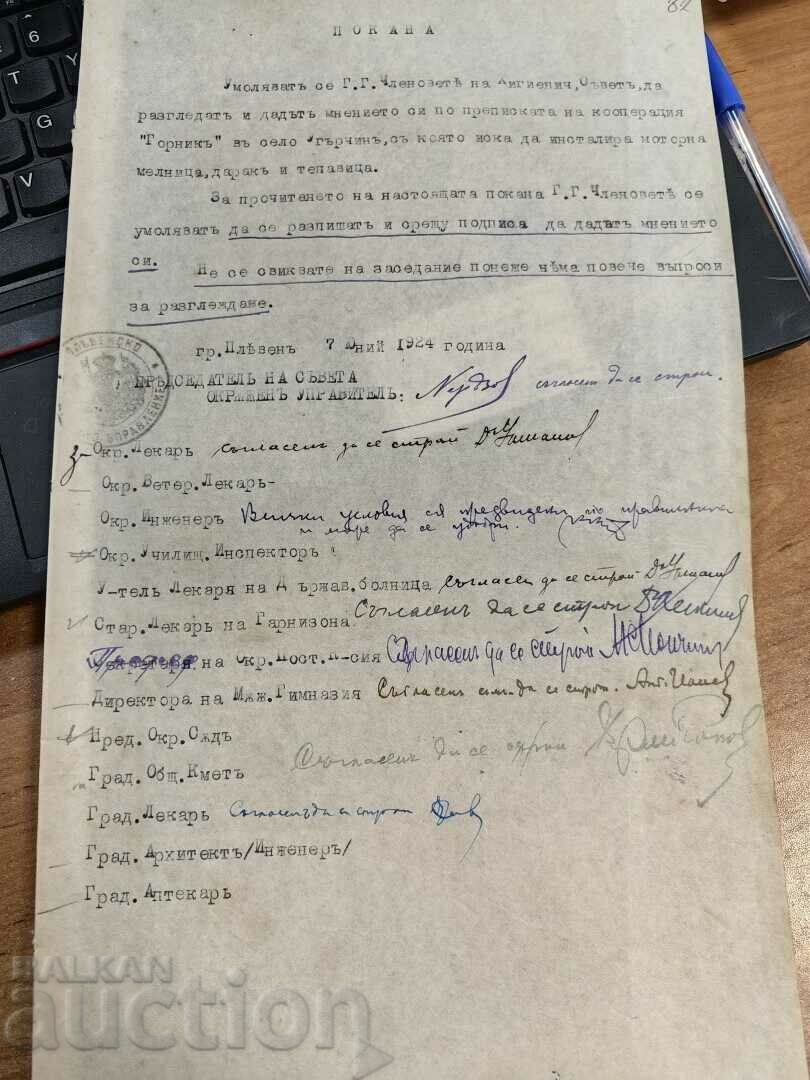 82
ПОКАНА
Умоляватъ се Г.Г.Членоветѣ на Хигиенич,Съветъ,да
разгледатъ и дадътъ мнението си по преписката на кооперация
"Горникъ" въ село Угърчин,съ която иска да инсталира моторна
мелница,даракъ и тепавица.
За прочитането на настоящата покана Г.Г.Членоветѣ се
умоляватъ да се разпишатъ и срещу подписа да дадътъ мнението
си.
Не се свиквате на заседание понеже нѣма повече въпроси
за разглеждане.
гр.Плѣвенъ 7 юний 1924 година
ПРЕДСЕДАТЕЛЬ НА СЪВЕТА
ОКРѪЖЕНЪ УПРАВИТЕЛЬ: съгласен да се строи.
Окр.Лекарь съгласенъ да се строй Д-ръ
Окр.Ветер.Лекарь-
Окр.Инженеръ Всички условия сѫ предвидени по правилника
и може да се
Окр.Училищ.Инспекторъ
У-тель Лекаря на Държав.болница Съгласен да се строй Д-ръ
Стар.Лекарь на Гарнизона Съгласенъ да се строи
на Окр.Пост.К-сия Съгласенъ да се строй
Директора на Мѫж.Гимназия Съгласенъ съм да се строи. Ант.
Пред.Окр.Сѫдъ
Съгласенъ да се строи
Град.Общ.Кметъ
Град.Лекарь Съгласенъ да се строи
Град.Архитектъ/Инженеръ/
Град.Аптекарь
BALKAN
auction